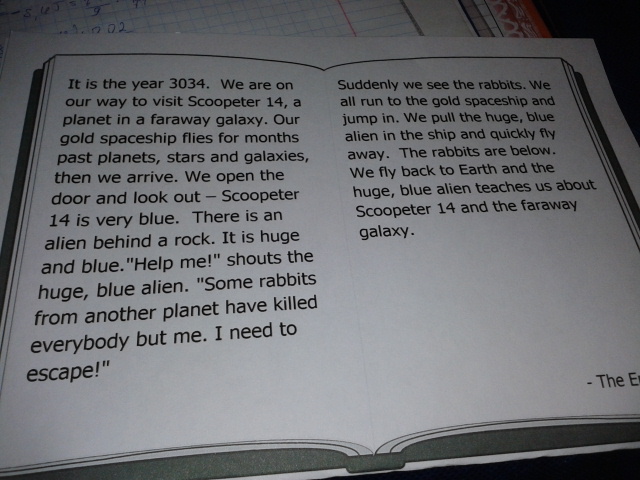 It is the year 3034.  We are on
our way to visit Scoopeter 14, a
planet in a faraway galaxy. Our
gold spaceship flies for months
past planets, stars and galaxies,
then we arrive. We open the
door and look out – Scoopeter
14 is very blue.  There is an
alien behind a rock. It is huge
and blue."Help me!" shouts the
huge, blue alien. "Some rabbits
from another planet have killed
everybody but me. I need to
escape!"
Suddenly we see the rabbits. We
all run to the gold spaceship and
jump in. We pull the huge, blue
alien in the ship and quickly fly
away.  The rabbits are below.
We fly back to Earth and the
huge, blue alien teaches us about
Scoopeter 14 and the faraway
galaxy.
- The